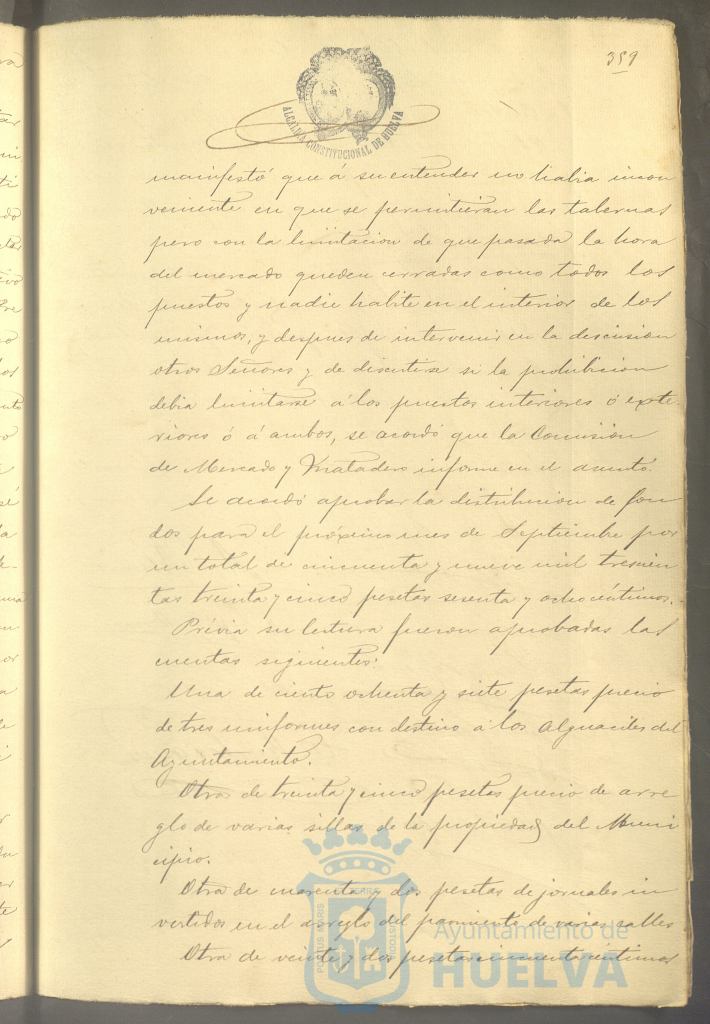 359
ALCALDIA CONSTITUCIONAL DE HUELVA
manifestó que á su entender no habia incon
veniente en que se permitieran las tabernas
pero con la limitacion de que pasada la hora
del mercado queden cerradas como todos los
puestos y nadie habite en el interior de los
mismos, y despues de intervenir en la descusion
otros Señores y de discutirse si la prohibicion
debia limitarse á los puestos interiores ó exte-
riores ó á ambos, se acordó que la Comision
de Mercado y Matadero informe en el asunto.
Se acordó aprobar la distribucion de fon
dos para el próximo mes de Septiembre por
un total de cincuenta y nueve mil trescien
tas treinta y cinco pesetas sesenta y ocho céntimos.
Prévia su lectura fueron aprobadas las
cuentas siguientes:
Una de ciento ochenta y siete pesetas precio
de tres uniformes con destino á los Alguaciles del
Ayuntamiento.
Otra de treinta y cinco pesetas precio de arre
glo de varias sillas de la propiedad del Muni
cipio.
Otra de cuarenta y dos pesetas de jornales in
vertidos en el arreglo del pavimento de varias calles
Otra de veinte y dos pesetas cincuenta céntimos
PORTUS MARIS ET TERRAE CUSTODIA
Ayuntamiento de
HUELVA